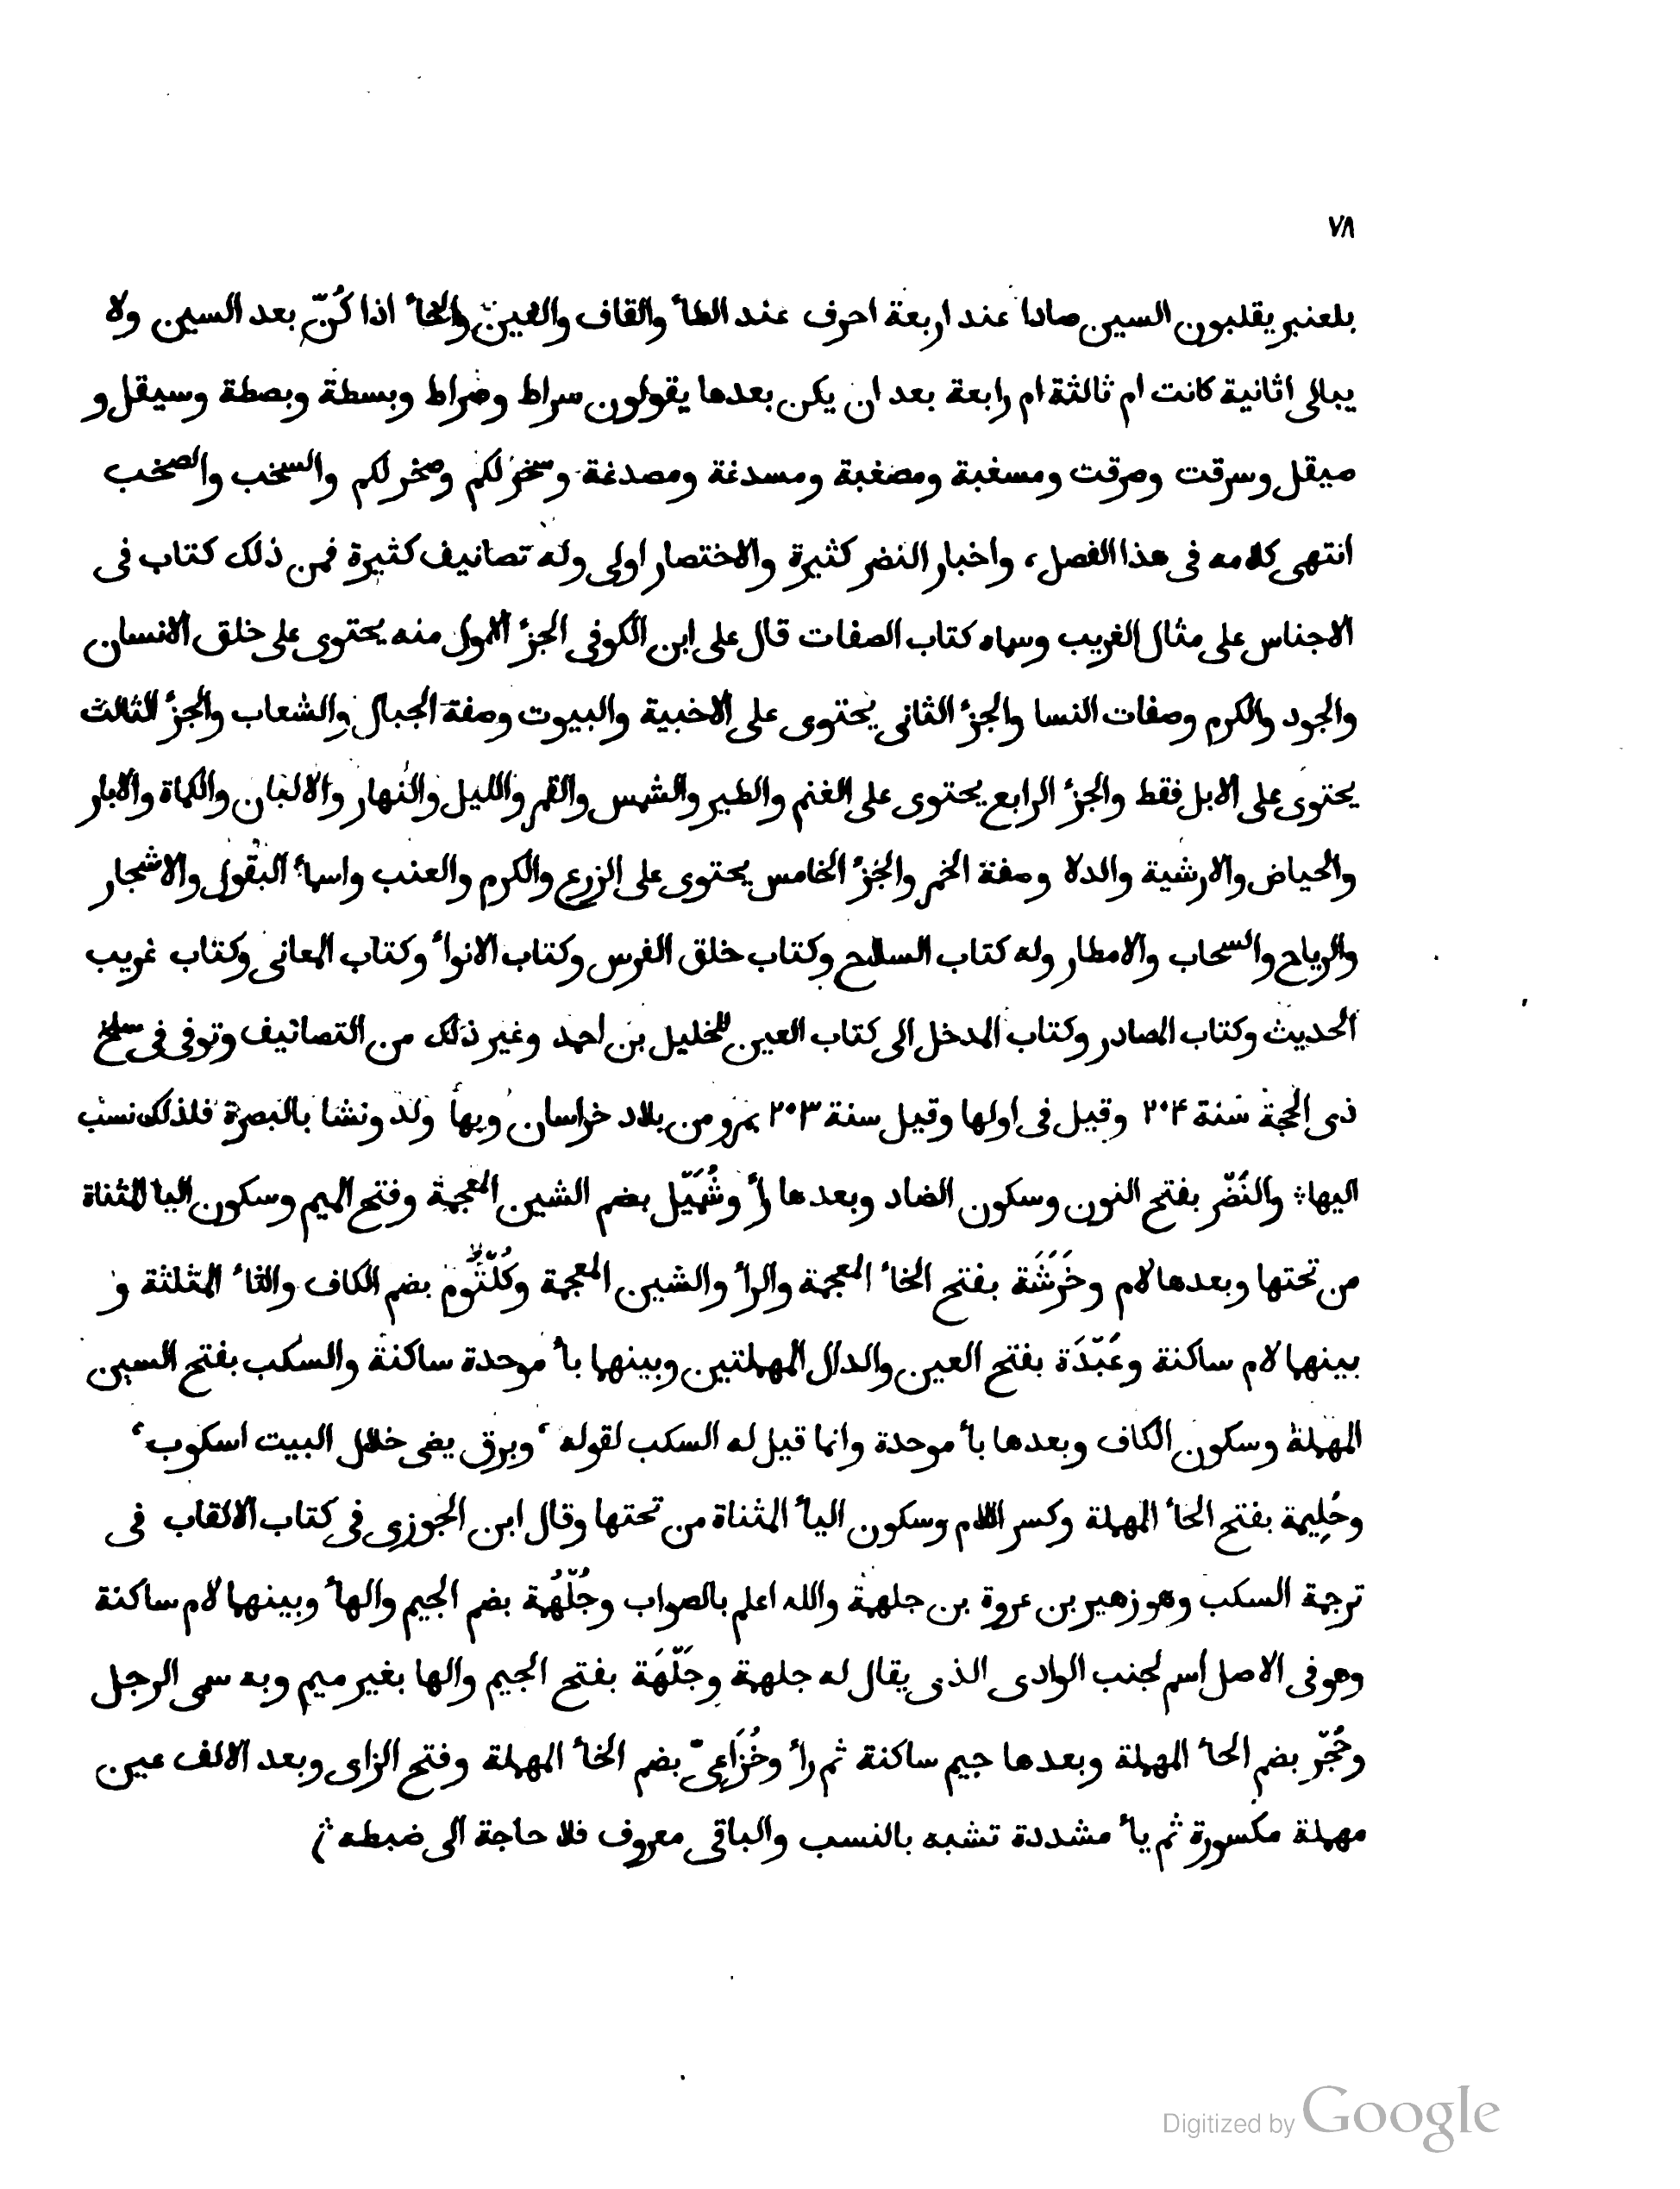 ٧٨
بلعنبر يقلبون السين صادا عند اربعة احرف عند الطأ والقاف والغين والخأ اذا كُنّ بعد السين ولا
يبالى اثانية كانت ام ثالثة ام رابعة بعد ان يكن بعدها يقولون سراط وصراط وبسطة وبصطة وسيقل و
صيقل وسرقت وصرقت ومسغبة ومصغبة ومسدغة ومصدغة وسخر لكم وصخر لكم والسخب والصخب
انتهى كلامه فى هذا الفصل، واخبار النضر كثيرة والاختصار اولى وله تصانيف كثيرة فمن ذلك كتاب فى
الاجناس على مثال الغريب وسماه كتاب الصفات قال على ابن الكوفى الجزٔ الاول منه يحتوى على خلق الانسان
والجود والكرم وصفات النسا والجزٔ الثانى يحتوى على الاخبية والبيوت وصفة الجبال والشعاب والجزٔ الثالث
يحتوى على الابل فقط والجزٔ الرابع يحتوى على الغنم والطير والشمس والقمر والليل والنهار والالبان والكماة والابار
والحياض والارشية والدلا وصفة الخمر والجزٔ الخامس يحتوى على الزرع والكرم والعنب واسمأ البقول والاشجار
والرياح والسحاب والامطار وله كتاب السلاح وكتاب خلق الفرس وكتاب الانوأ وكتاب المعانى وكتاب غريب
الحديث وكتاب المصادر وكتاب المدخل الى كتاب العين للخليل بن احمد وغير ذلك من التصانيف وتوفى فى سلخ
ذى الحجة سنة ٢٠۴ وقيل فى اولها وقيل سنة ٢٠٣ بمرو من بلاد خراسان وبها ولد ونشا بالبصرة فلذلك نسب
اليها؞ والنَضّر بفتح النون وسكون الضاد وبعدها رأ وشُمَيّل بضم الشين المعجمة وفتح الميم وسكون اليا المثناة
من تحتها وبعدها لام وخَرَشَة بفتح الخأ المعجمة والرأ والشين المعجمة وكُلّثُوم بضم الكاف والثأ المثلثة و
بينهما لام ساكنة وعَبّدَة بفتح العين والدال المهملتين وبينهما بأ موحدة ساكنة والسكب بفتح السين
المهملة وسكون الكاف وبعدها بأ موحدة وانما قيل له السكب لقوله ‘ وبرق يضى خلال البيت اسكوب ‘
وحَلِيمة بفتح الحأ المهملة وكسر اللام وسكون اليأ المثناة من تحتها وقال ابن الجوزى فى كتاب الالقاب فى
ترجمة السكب وهو زهير بن عروة بن جلهمة والله اعلم بالصواب وجُلّهُمة بضم الجيم والهأ وبينهما لام ساكنة
وهو فى الاصل اسم لجنب الوادى الذى يقال له جلهمة وجَلّهَة بفتح الجيم والها بغير ميم وبه سمى الرجل
وحُجّر بضم الحأ المهملة وبعدها جيم ساكنة ثم رأ وخُزَاعِىّ بضم الخأ المهملة وفتح الزاى وبعد الالف عين
مهملة مكسورة ثم يأ مشددة تشبه بالنسب والباقى معروف فلا حاجة الى ضبطه
Digitized by Google